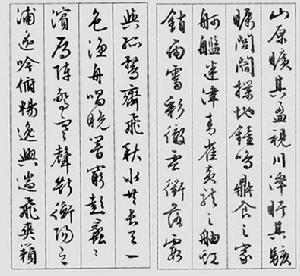 山原曠其盈視川澤盱其駭
矚閭閻撲地鐘鳴鼎食之家
舸艦迷津青雀黃龍之舳虹
銷雨霽彩徹雲衢落霞
與孤鶩齊飛秋水共長天一
色漁舟唱晚響窮彭蠡之
濱雁陣驚寒聲斷衡陽之
浦遙吟俯暢逸興遄飛爽籟